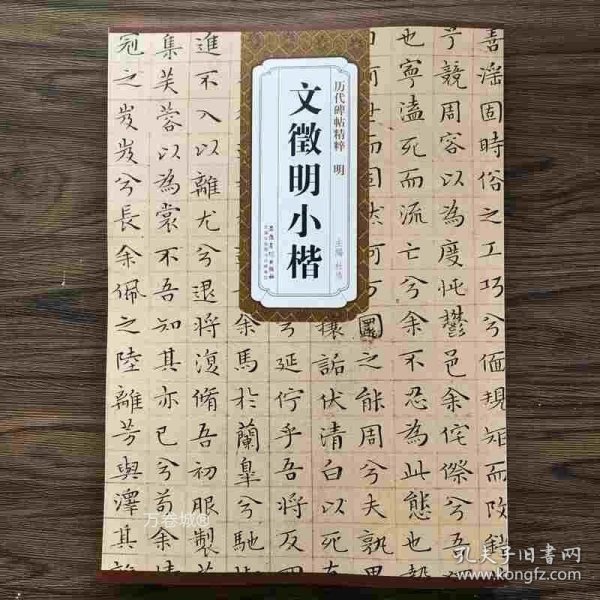 历代碑帖精粹 明
文徵明小楷
善淫固時俗之工巧兮偭規矩而改錯
兮競周容以為度忳鬱邑余侘傺兮吾
也寧溘死而流亡兮余不忍為此態也
圜之能周兮夫孰
攘詬伏清白以死
兮延佇乎吾將反
余馬於蘭皋兮馳
進不入以離尤兮退將復脩吾初服製
集芙蓉以為裳不吾知其亦已兮苟余
冠之岌岌兮長余佩之陸離芳與澤其
万卷城®
孔夫子旧书网
www.kongfz.com